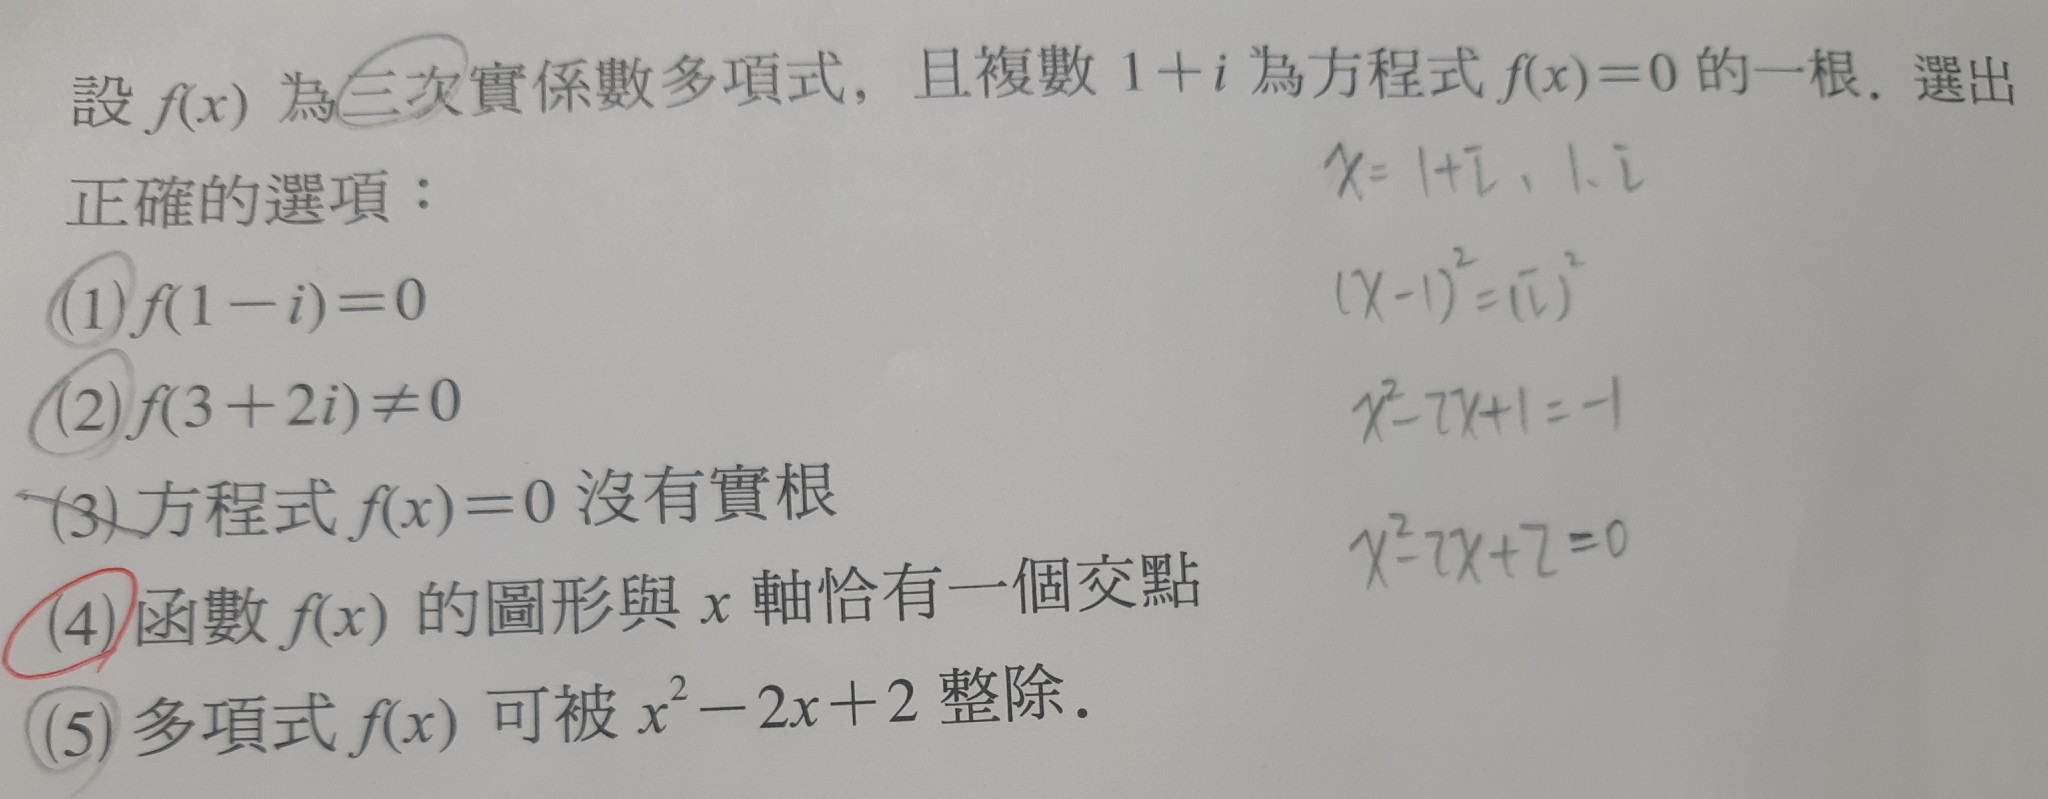 設 f(x) 為三次實係數多項式，且複數 1+i 為方程式 f(x)=0 的一根．選出
正確的選項：
x= 1+i、1-i
(1) f(1-i)=0
(x-1)²=(i)²
(2) f(3+2i)≠0
x²-2x+1=-1
(3) 方程式 f(x)=0 沒有實根
x²-2x+2=0
(4) 函數 f(x) 的圖形與 x 軸恰有一個交點
(5) 多項式 f(x) 可被 x²-2x+2 整除．